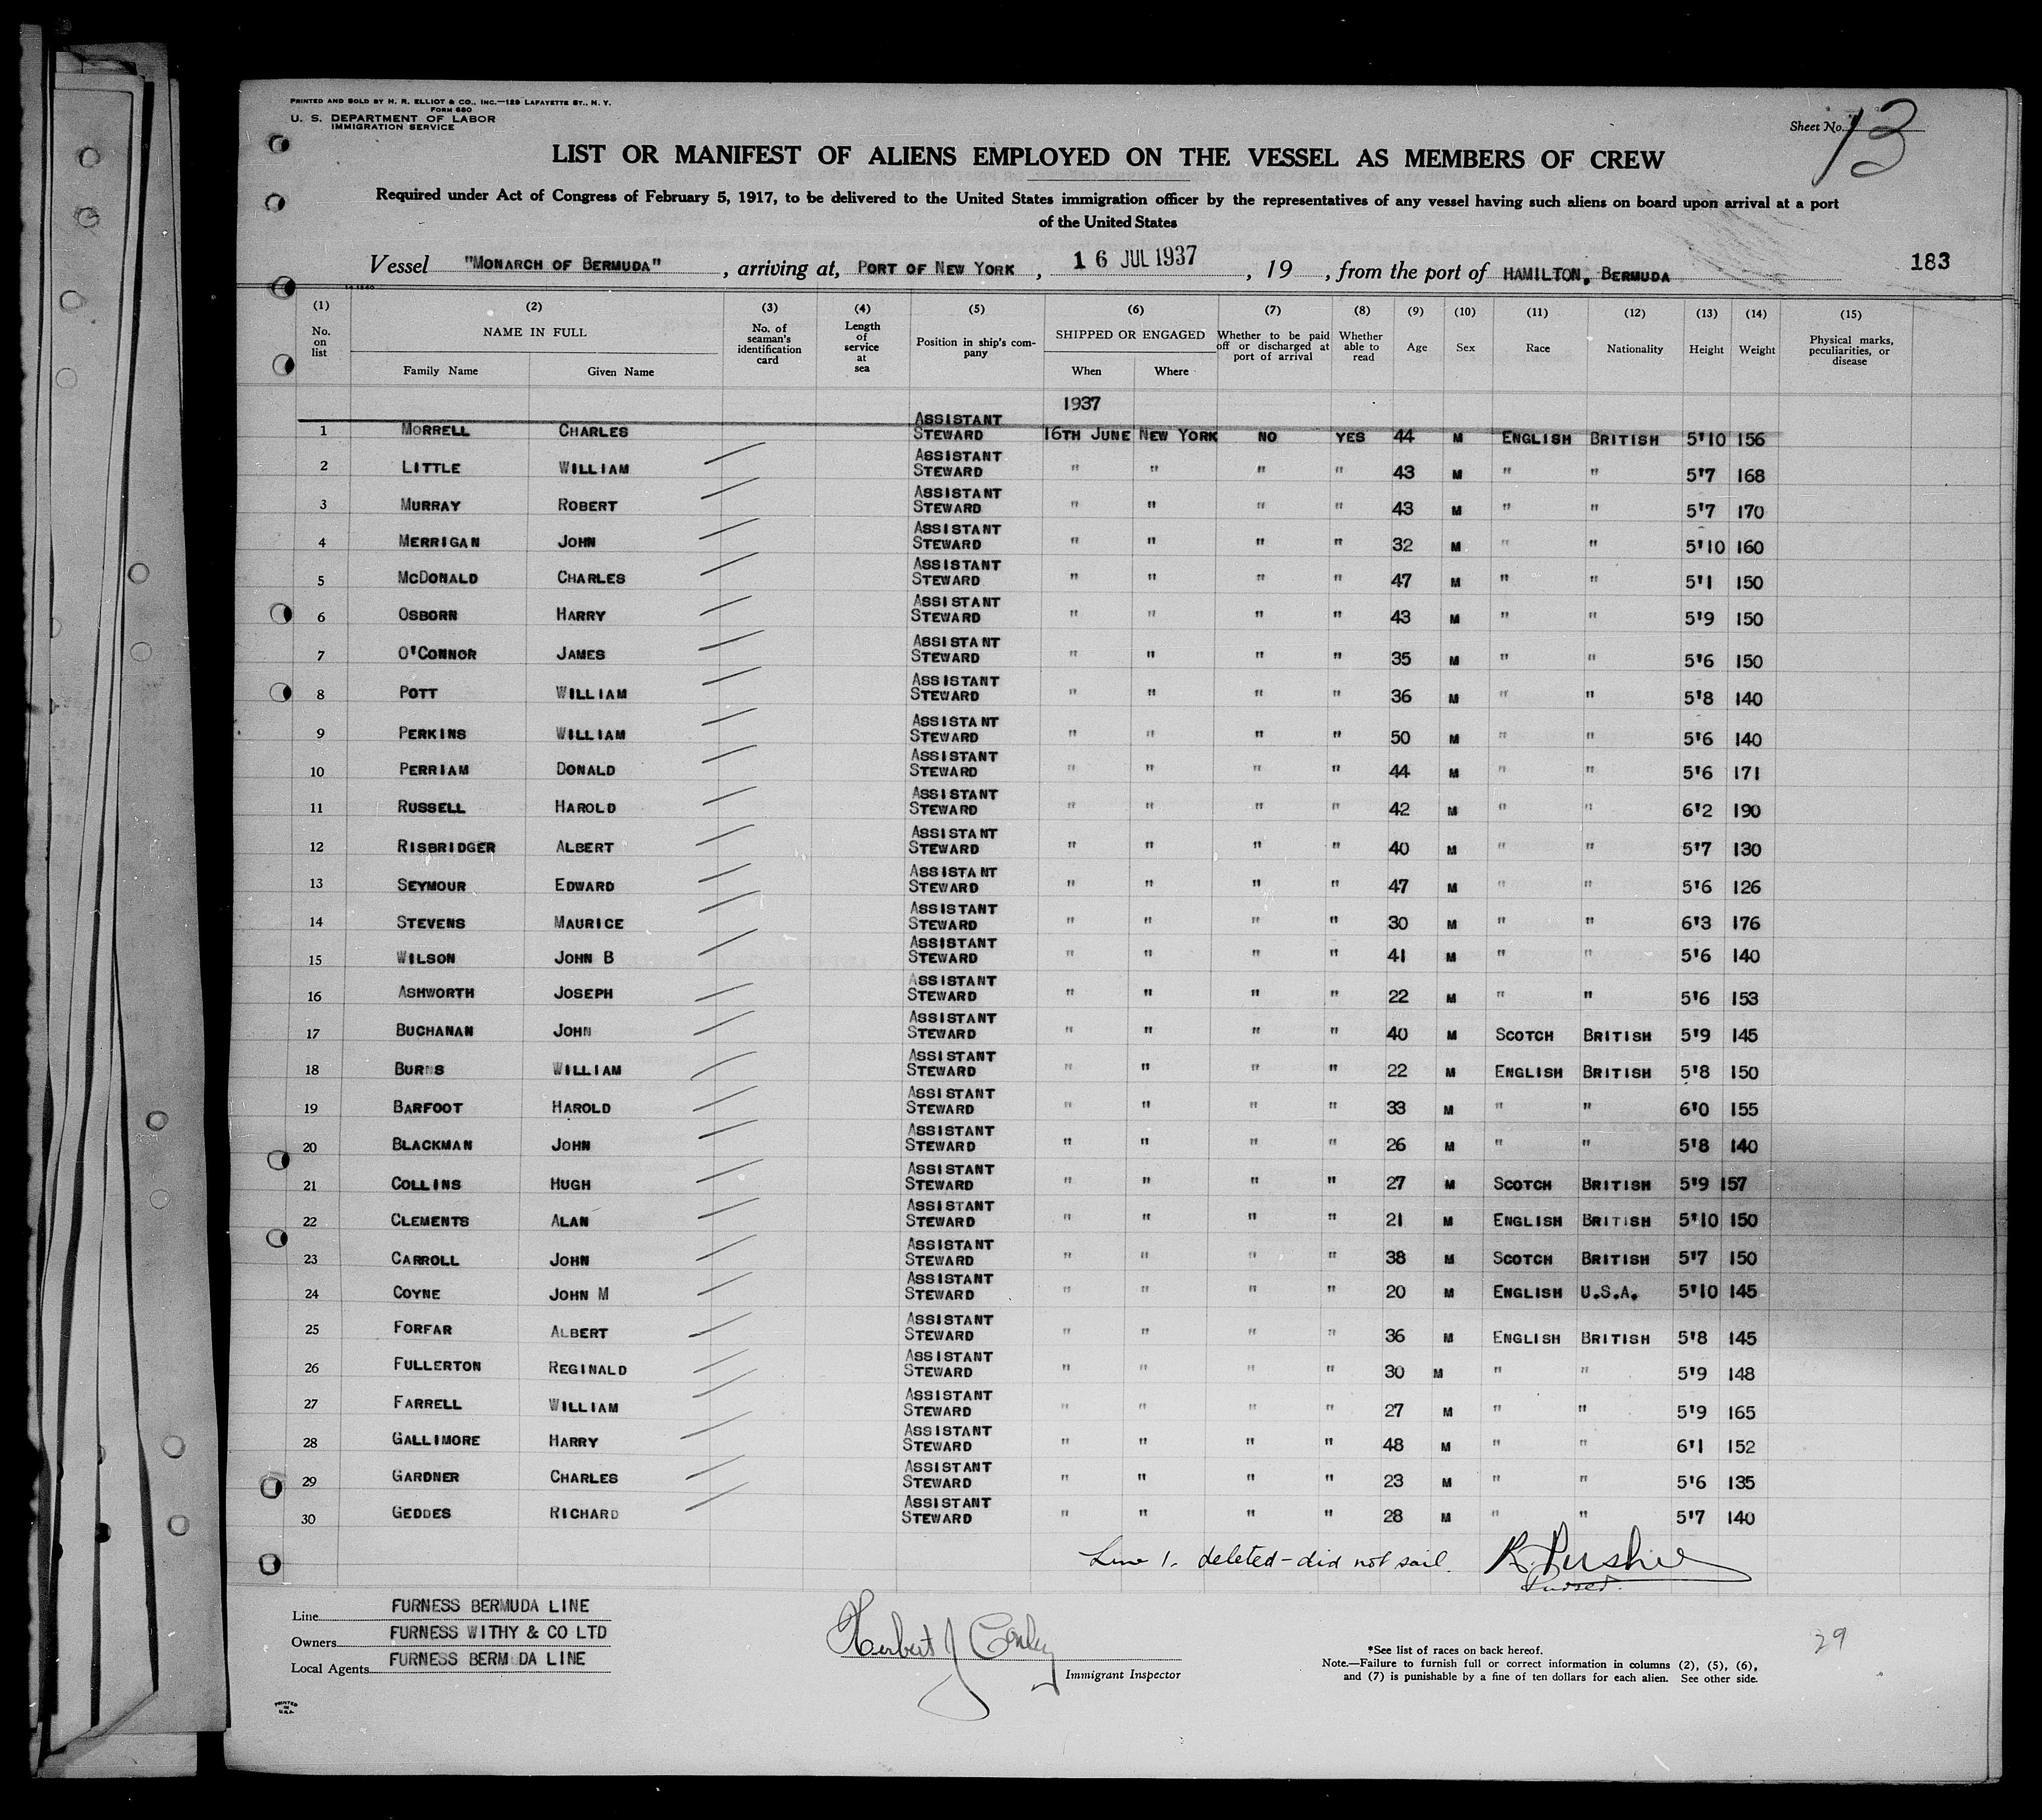 PRINTED AND SOLD BY H. R. ELLIOT & CO., INC.—129 LAFAYETTE ST., N. Y.
FORM 680
U. S. DEPARTMENT OF LABOR
IMMIGRATION SERVICE
Sheet No. 13
LIST OR MANIFEST OF ALIENS EMPLOYED ON THE VESSEL AS MEMBERS OF CREW
Required under Act of Congress of February 5, 1917, to be delivered to the United States immigration officer by the representatives of any vessel having such aliens on board upon arrival at a port
of the United States
Vessel "MONARCH OF BERMUDA", arriving at, PORT OF NEW YORK, 16 JUL 1937, 19 , from the port of HAMILTON, BERMUDA 183
(1) No. on list (2) NAME IN FULL Family Name Given Name (3) No. of seaman's identification card (4) Length of service at sea (5) Position in ship's company (6) SHIPPED OR ENGAGED When Where (7) Whether to be paid off or discharged at port of arrival (8) Whether able to read (9) Age (10) Sex (11) Race (12) Nationality (13) Height (14) Weight (15) Physical marks, peculiarities, or disease
1937
1 MORRELL CHARLES ASSISTANT STEWARD 16TH JUNE NEW YORK NO YES 44 M ENGLISH BRITISH 5'10 156
2 LITTLE WILLIAM ASSISTANT STEWARD " " " " 43 M " " 5'7 168
3 MURRAY ROBERT ASSISTANT STEWARD " " " " 43 M " " 5'7 170
4 MERRIGAN JOHN ASSISTANT STEWARD " " " " 32 M " " 5'10 160
5 MCDONALD CHARLES ASSISTANT STEWARD " " " " 47 M " " 5'1 150
6 OSBORN HARRY ASSISTANT STEWARD " " " " 43 M " " 5'9 150
7 O'CONNOR JAMES ASSISTANT STEWARD " " " " 35 M " " 5'6 150
8 POTT WILLIAM ASSISTANT STEWARD " " " " 36 M " " 5'8 140
9 PERKINS WILLIAM ASSISTANT STEWARD " " " " 50 M " " 5'6 140
10 PERRIAM DONALD ASSISTANT STEWARD " " " " 44 M " " 5'6 171
11 RUSSELL HAROLD ASSISTANT STEWARD " " " " 42 M " " 6'2 190
12 RISBRIDGER ALBERT ASSISTANT STEWARD " " " " 40 M " " 5'7 130
13 SEYMOUR EDWARD ASSISTANT STEWARD " " " " 47 M " " 5'6 126
14 STEVENS MAURICE ASSISTANT STEWARD " " " " 30 M " " 6'3 176
15 WILSON JOHN B ASSISTANT STEWARD " " " " 41 M " " 5'6 140
16 ASHWORTH JOSEPH ASSISTANT STEWARD " " " " 22 M " " 5'6 153
17 BUCHANAN JOHN ASSISTANT STEWARD " " " " 40 M SCOTCH BRITISH 5'9 145
18 BURNS WILLIAM ASSISTANT STEWARD " " " " 22 M ENGLISH BRITISH 5'8 150
19 BARFOOT HAROLD ASSISTANT STEWARD " " " " 33 M " " 6'0 155
20 BLACKMAN JOHN ASSISTANT STEWARD " " " " 26 M " " 5'8 140
21 COLLINS HUGH ASSISTANT STEWARD " " " " 27 M SCOTCH BRITISH 5'9 157
22 CLEMENTS ALAN ASSISTANT STEWARD " " " " 21 M ENGLISH BRITISH 5'10 150
23 CARROLL JOHN ASSISTANT STEWARD " " " " 38 M SCOTCH BRITISH 5'7 150
24 COYNE JOHN M ASSISTANT STEWARD " " " " 20 M ENGLISH U.S.A. 5'10 145
25 FORFAR ALBERT ASSISTANT STEWARD " " " " 36 M ENGLISH BRITISH 5'8 145
26 FULLERTON REGINALD ASSISTANT STEWARD " " " " 30 M " " 5'9 148
27 FARRELL WILLIAM ASSISTANT STEWARD " " " " 27 M " " 5'9 165
28 GALLIMORE HARRY ASSISTANT STEWARD " " " " 48 M " " 6'1 152
29 GARDNER CHARLES ASSISTANT STEWARD " " " " 23 M " " 5'6 135
30 GEDDES RICHARD ASSISTANT STEWARD " " " " 28 M " " 5'7 140
Line 1. deleted - did not sail.
Purser.
Line FURNESS BERMUDA LINE
Owners FURNESS WITHY & CO LTD
Local Agents FURNESS BERMUDA LINE
Herbert J Conley
Immigrant Inspector
*See list of races on back hereof.
Note.—Failure to furnish full or correct information in columns (2), (5), (6),
and (7) is punishable by a fine of ten dollars for each alien. See other side.
29
PRINTED
IN
U.S.A.